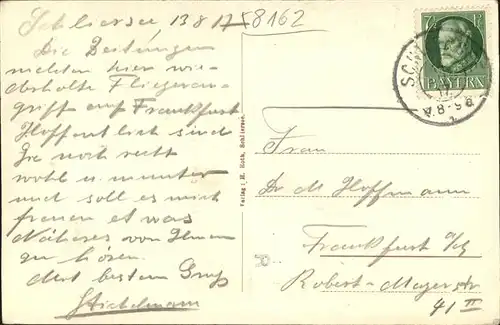 Schliersee 13 8 17 58162
Die Zeitungen
melden hier wie-
derholte Fliegeran-
griff auf Frankfurt
Hoffentlich sind
Sie noch recht
wohl u. munter
und soll es mich
freuen etwas
Näheres von Ihnen
zu hören.
Mit besten Gruß
7½
BAYERN
V. 8-9
Verlag: H. Koch, Schliersee.
Frau
Dr M Hoffmann
Frankfurt a/M
Robert-Mayerstr
41 II